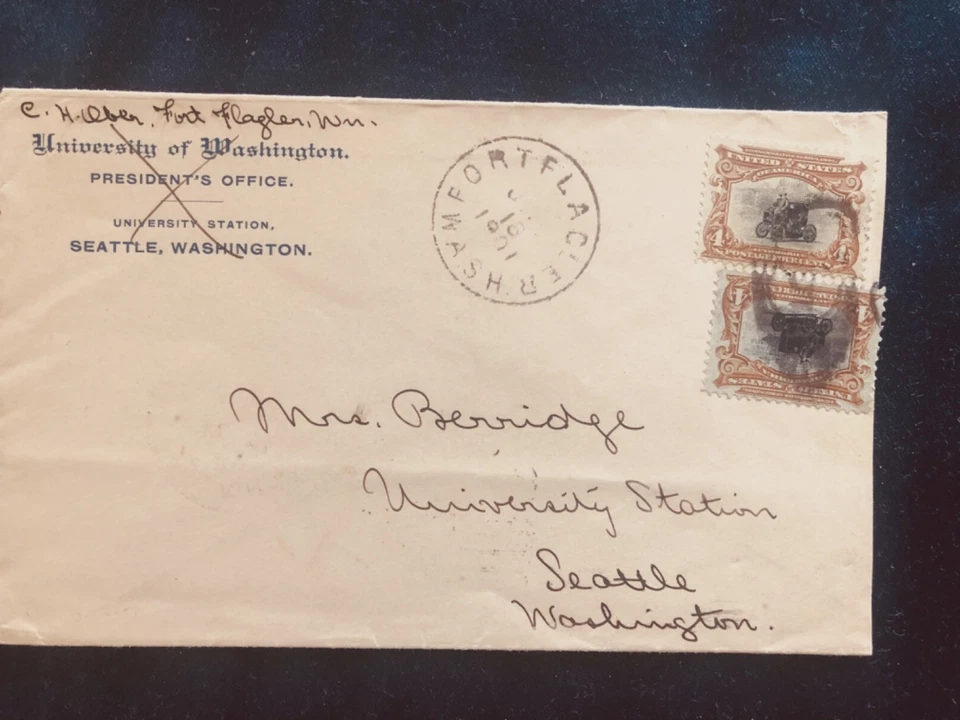 C. H. Ober, Fort Flagler, Wn.
University of Washington.
PRESIDENT'S OFFICE.
UNIVERSITY STATION,
SEATTLE, WASHINGTON.
FORT FLAGLER WASH
1901
UNITED STATES
OF AMERICA
4 4
POSTAGE FOUR CENTS
Mrs. Berridge
University Station
Seattle
Washington.